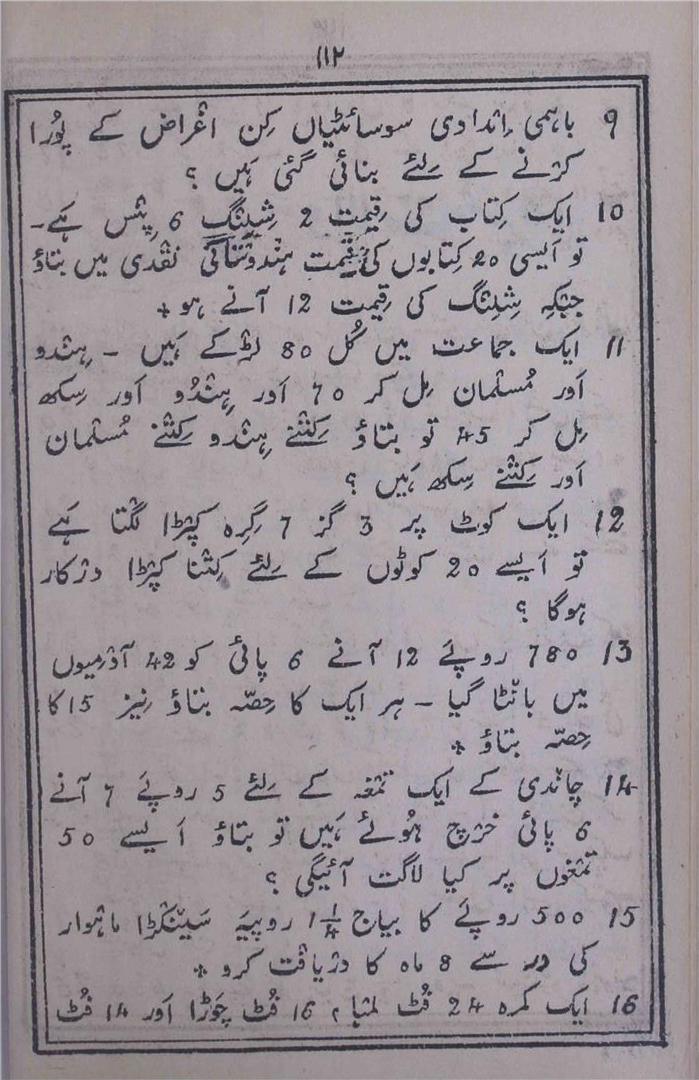 ۱۱۲
9 باہمی اِمدادی سوسائٹیاں کِن اغْراض کے پُورا
کرْنے کے لِئے بنائی گئی ہَیں ؟
10 ایک کِتاب کی قِیمت 2 شِلِنگ 6 پِنْس ہَے۔
تو اَیسی 20 کِتابوں کی قِیمت ہِنْدوسْتانی نقْدی میں بتاؤ
جبْکِہ شِلِنْگ کی قِیمت 12 آنے ہو +
11 ایک جماعت میں کُل 80 لڑْکے ہَیں - ہِنْدو
اَور مُسلْمان مِل کر 70 اَور ہِنْدُو اَور سِکھ
مِل کر 45 تو بتاؤ کِتْنے ہِنْدو کِتْنے مُسلْمان
اَور کِتْنے سِکھ ہَیں ؟
12 ایک کوٹ پر 3 گز 7 گِرہ کپْڑا لگْتا ہَے
تو اَیسے 20 کوٹوں کے لِئے کِتْنا کپْڑا درْکار
ہوگا ؟
13 780 روپَے 12 آنے 6 پائی کو 42 آدْمیوں
میں بانْٹا گیا - ہر ایک کا حِصّہ بتاؤ نِیز 15 کا
حِصّہ بتاؤ +
14 چانْدی کے ایک تمْغہ کے لِئے 5 روپَے 7 آنے
6 پائی خرْچ ہُوئے ہَیں تو بتاؤ اَیسے 50
تمْغوں پر کیا لاگت آئیگی ؟
15 500 روپَے کا بیاج 1¼ روپیَہ سَینْکڑا ماہْوار
کی در سے 8 ماہ کا درْیافْت کرو +
16 ایک کمرہ 24 فُٹ لمْبا، 16 فُٹ چَوڑا اَور 14 فُٹ